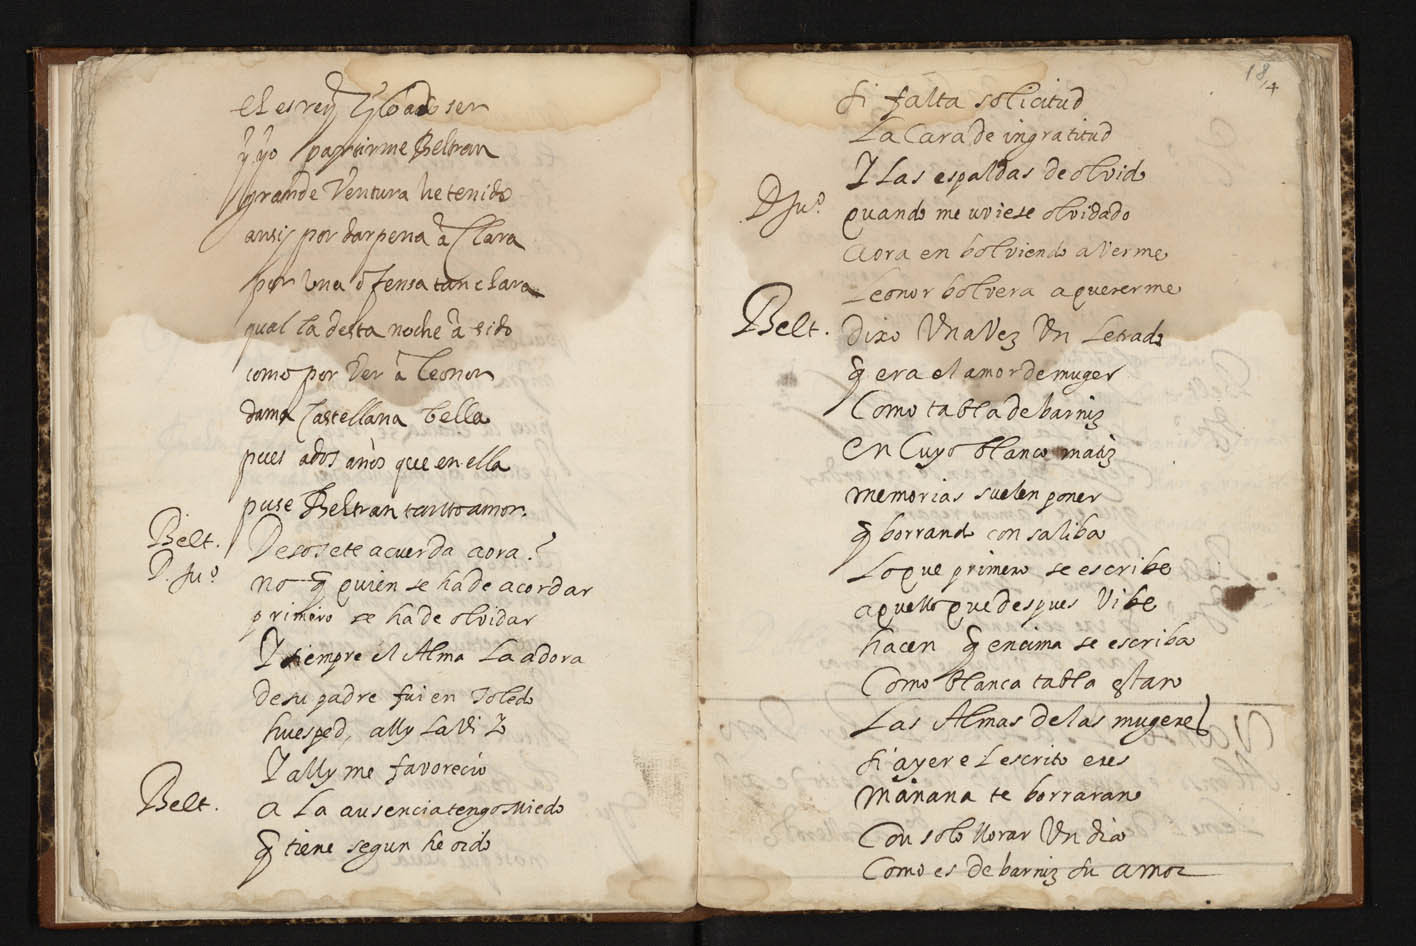 el es rey y lo a de ser
y yo partirme Beltran
grande Ventura he tenido
ansi por dar pena â Clara
por Una ofensa tan clara
qual la desta noche â sido
como por Ver â Leonor
dama Castellana bella
pues a dos años que en ella
puse Beltran tanto amor.
Belt. Deso se te acuerda aora?
D. Juº no q̃ quien se ha de acordar
primero se ha de olvidar
Y siempre el Alma La adora
de su padre fui en Toledo
huesped, ally La Vi Yo
Y ally me favorecio
Belt. a La ausencia tengo Miedo
q̃ tiene segun he oido
18
14
si falta solicitud
La Cara de ingratitud
Y Las espaldas de olvido
D Juº. quando me uviese olvidado
aora en bolviendo a Verme
Leonor bolvera a quererme
Belt. Dixo Una Vez Un Letrado
q̃ era el amor de muger
Como tabla de barniz
en Cuyo blanco matiz
memorias suelen poner
q̃ borrando con saliba
Lo que primero se escribe
aquello que despues Vibe
hacen q̃ encima se escriba
Como blanca tabla estan
Las Almas de las mugeres
si ayer el escrito eres
mañana te borraran
Con solo llorar Un dia
Como es de barniz su amor